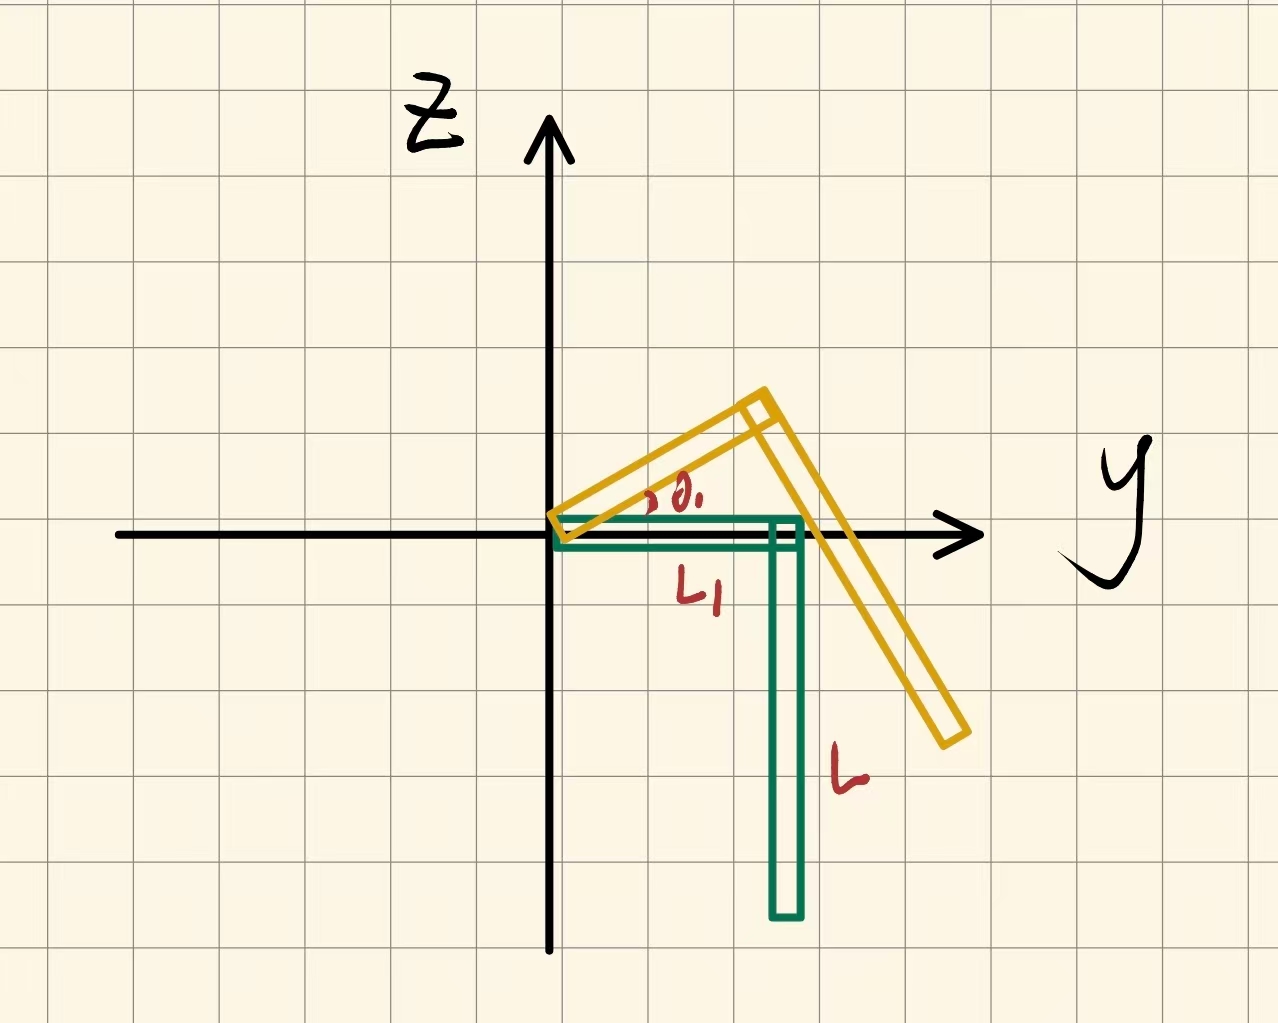 Z
y
θ₁
L₁
L